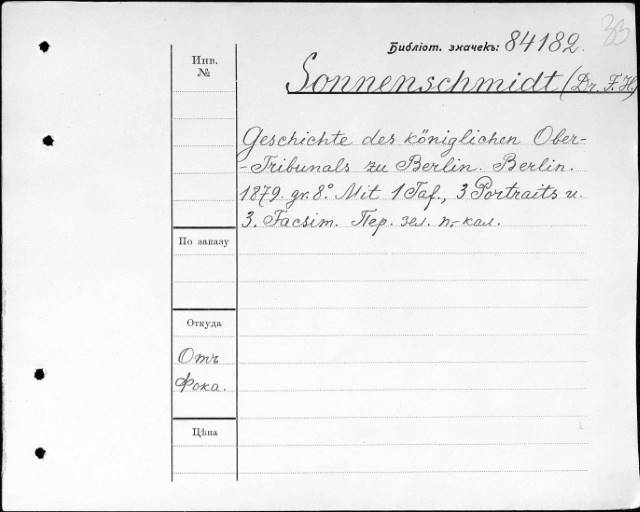 Библіот. значекъ: 84182.
33
Инв.
№
Sonnenschmidt (Dr. F. H.)
Geschichte des königlichen Ober-
-Tribunals zu Berlin. Berlin.
1879. gr. 8°. Mit 1 Taf., 3 Portraits u.
3. Facsim. Пер. зел. п.-кал.
По заказу
Откуда
Отъ
Фока.
Цѣна